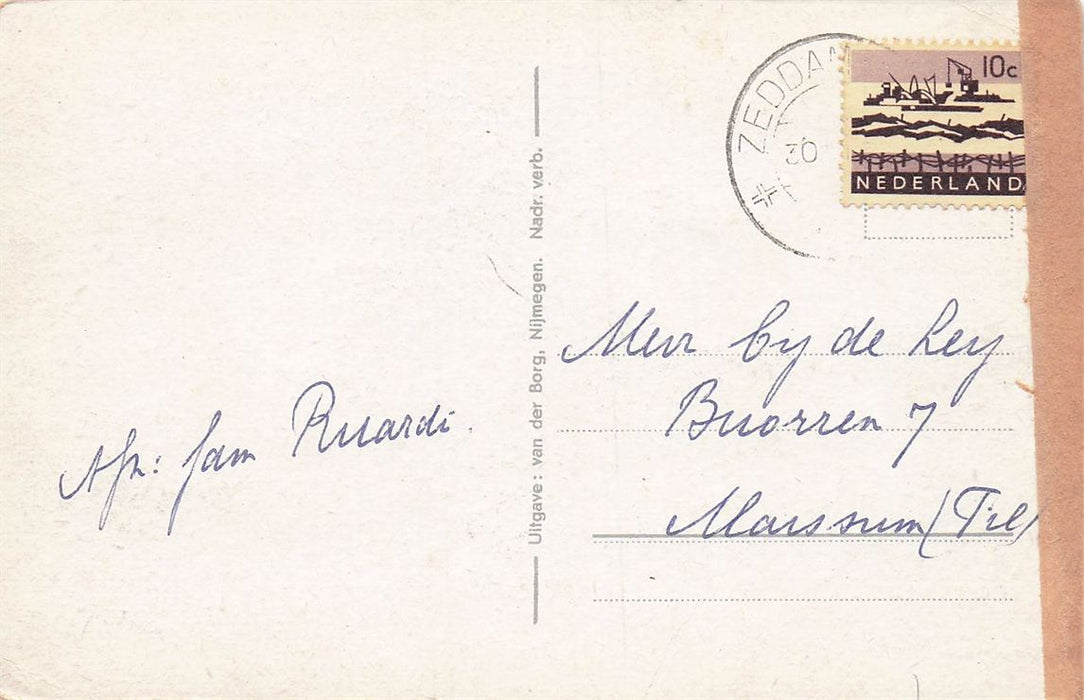 ZEDDAM
30
10c
NEDERLAND
Uitgave: van der Borg, Nijmegen. Nadr. verb.
Mevr by de Ley
Buorren 7
Marssum (Frl)
Afz: fam Ruardi.